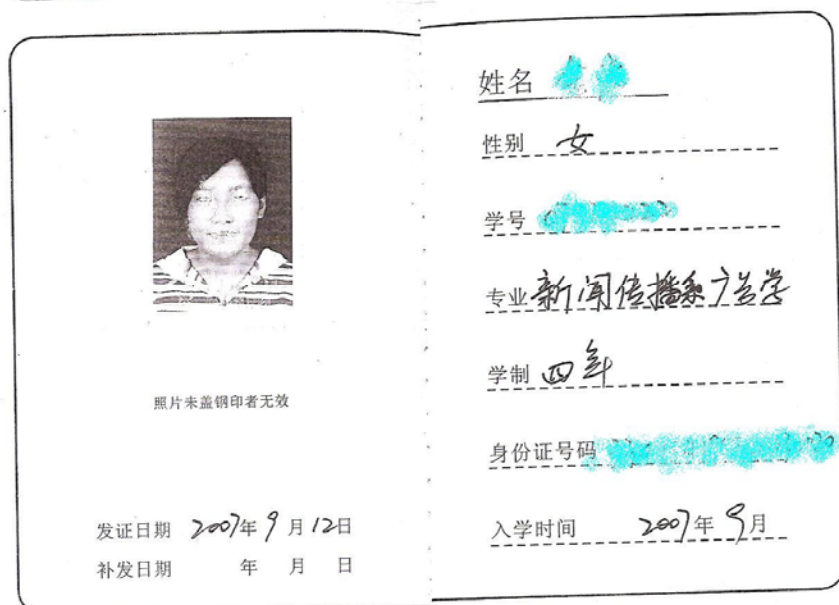 照片未盖钢印者无效
发证日期 2007年9月12日
补发日期 年 月 日
姓名
性别 女
学号
专业 新闻传播系广告学
学制 四年
身份证号码
入学时间 2007年9月